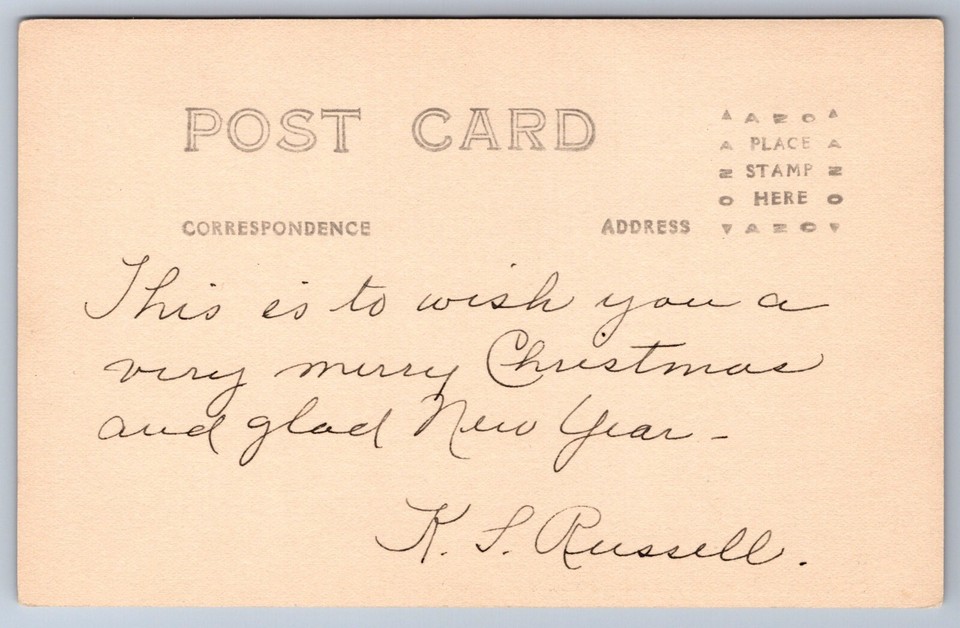 POST CARD
▲ A Z O ▲
A PLACE A
Z STAMP Z
O HERE O
▼ A Z O ▼
CORRESPONDENCE
ADDRESS
This is to wish you a
very merry Christmas
and glad New Year -
K. S. Russell.